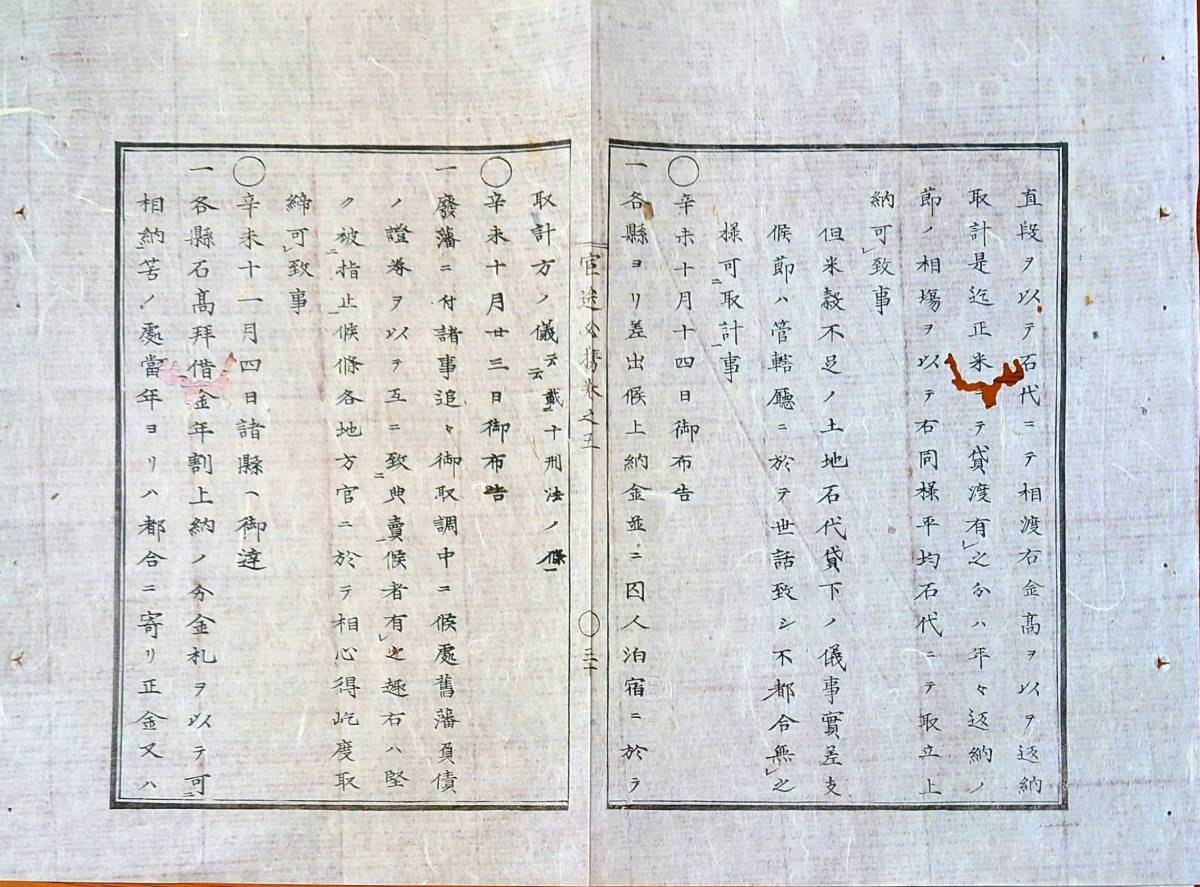 直段ヲ以テ石代ニテ相渡石金高ヲ以ヲ返納
取計是迄正米ニテ貸渡有レ之分ハ年々返納ノ
節ノ相塲ヲ以テ右同様平均石代ニテ取立上
納可レ致事
但米穀不足ノ土地石代貸下ノ儀事實差支
候節ハ管轄廳ニ於テ世話致シ不都合無レ之
様可ニ取計一事
◯辛未十月十四日御布告
一各縣ヨリ差出候上納金並ニ囚人泊宿ニ於テ
官途必携巻之五
◯三十
取計方ノ儀云云載十刑法ノ條一
◯辛未十月廿三日御布告
一廢藩ニ付諸事追々御取調中ニ候處舊藩負債
ノ證券ヲ以テ互ニ致ニ典賣一候者有レ之趣右ハ堅
ク被ニ指止一候條各地方官ニ於テ相心得屹度取
締可レ致事
◯辛未十一月四日諸縣ヘ御達
一各縣石髙拜借金年割上納ノ分金札ヲ以テ可ニ
相納一筈ノ處當年ヨリハ都合ニ寄リ正金又ハ